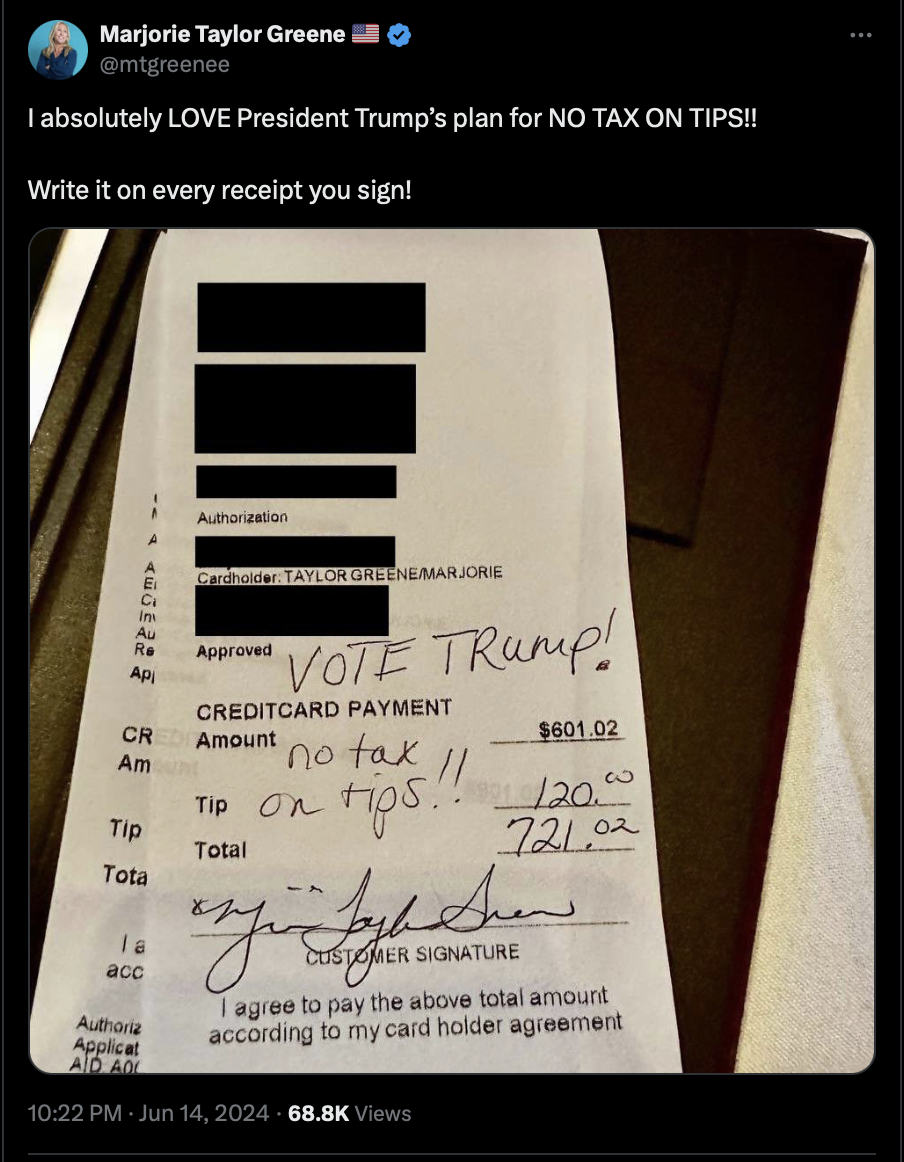 Marjorie Taylor Greene
@mtgreenee
I absolutely LOVE President Trump’s plan for NO TAX ON TIPS!!
Write it on every receipt you sign!
Authorization
Cardholder: TAYLOR GREENE/MARJORIE
Approved
VOTE TRump!
CREDITCARD PAYMENT
Amount $601.02
no tax
on tips!!
Tip 120.00
Total 721.02
CUSTOMER SIGNATURE
I agree to pay the above total amount
according to my card holder agreement
A
A
Ei
Au
Re
CR
Am
Tip
Tota
I a
acc
Authoriz
Applicat
10:22 PM · Jun 14, 2024 · 68.8K Views